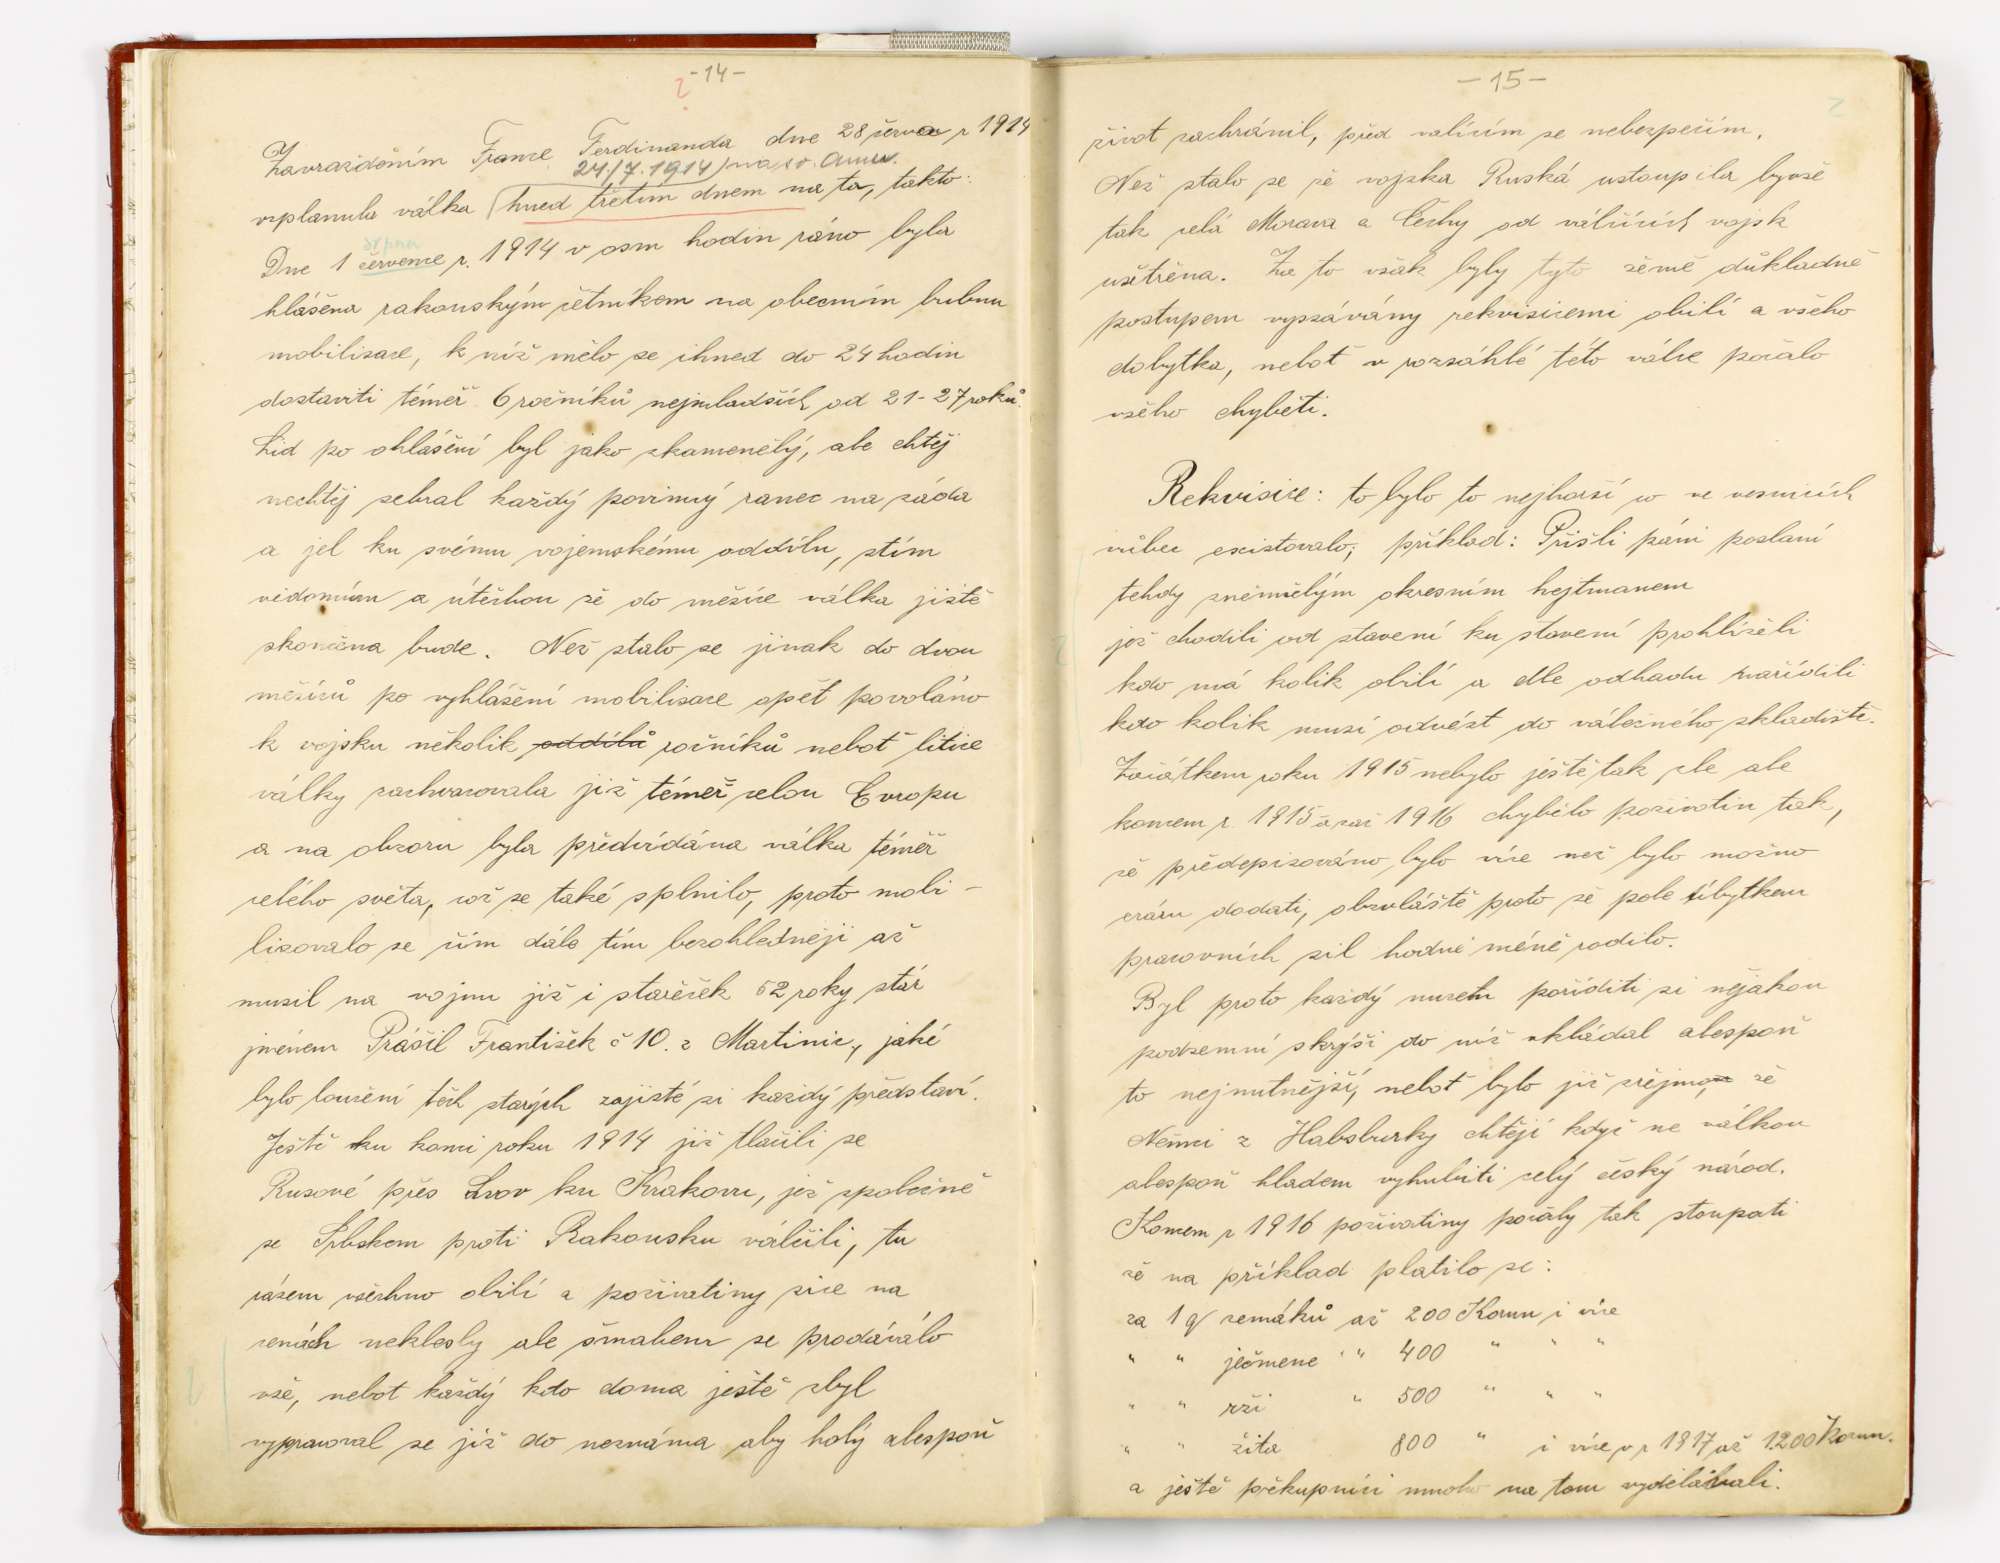 -14-
Zavražděním France Ferdinanda dne 28 června r 1914
24/7. 1914) na sv. Annu.
vzplanula válka (hned třetím dnem na to, takto:
srpna
Dne 1 července r. 1914 v osm hodin ráno byla
hlášena rakouským četníkem na obecním bubnu
mobilisace, k níž mělo se ihned do 24 hodin
dostaviti téměř 6 ročníků nejmladších od 21-27 roků.
Lid po ohlášení byl jako zkamenělý, ale chtěj
nechtěj sebral každý povinný ranec na záda
a jel ku svému vojenskému oddílu, stím
vědomím a útěchou že do měsíce válka jistě
skončena bude. Než stalo se jinak do dvou
měsíců po vyhlášení mobilisace opět povoláno
k vojsku několik oddílů ročníků neboť litice
války zachvacovala již téměř celou Evropu
a na obzoru byla předvídána válka téměř
celého světa, což se také splnilo, proto mobi-
lizovalo se čím dále tím bezohledněji až
musil na vojnu již i stařeček 52 roky stár
jménem Prášil František č 10. z Martinic, jaké
bylo loučení těch starých zajisté si každý představí.
Ještě ku konci roku 1914 již tlačili se
Rusové přes Lvov ku Krakovu, jež společně
se Srbskem proti Rakousku válčili, tu
rázem všechno obilí a poživatiny sice na
cenách neklesly ale šmahem se prodávalo
vše, nebot každý kdo doma ještě zbyl
vypracoval se již do neznáma aby holý alespoň
-15-
život zachránil, před valícím se nebezpečím.
Než stalo se že vojska Ruská ustoupila byvše
tak celá Morava a Čechy od válčících vojsk
ušetřena. Za to však byly tyto země důkladně
postupem vyssávány rekvisicemi obilí a všeho
dobytka, neboť v rozsáhlé této válce počalo
všeho chyběti.
Rekvisice: to bylo to nejhorší co ve vesnicích
vůbec existovalo; příklad: Přišli páni poslaní
tehdy zněmčelým okresním hejtmanem
jež chodili od stavení ku stavení prohlíželi
kdo má kolik obilí a dle odhadu nařídili
kdo kolik musí odvézt do válečného skladiště.
Začátkem roku 1915 nebylo ještě tak zle ale
koncem r. 1915 a zač 1916 chybělo poživatin tak,
že předepisováno bylo více než bylo možno
eráru dodati, obzvláště proto že pole úbytkem
pracovních sil hodně méně rodilo.
Byl proto každý nucen poříditi si nějakou
podzemní skrýši do níž vkládal alespoň
to nejnutnější, neboť bylo již zřejmo, že
Němci z Habsburky chtějí když ne válkou
alespoň hladem vyhubiti celý český národ.
Koncem r 1916 poživatiny počaly tak stoupati
že na příklad platilo se:
za 1 q zemáků až 200 Korun i více
" " ječmene " " 400 " " "
" " rži " 500 " " "
" " žita 800 " i více, v r 1917 až 1.200 Korun.
a ještě překupníci mnoho na tom vydělávali.